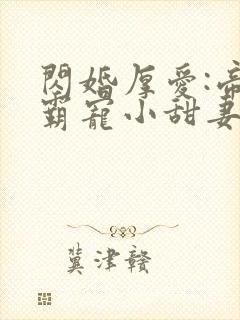 閃婚厚愛:帝
霸寵小甜妻
冀津赣